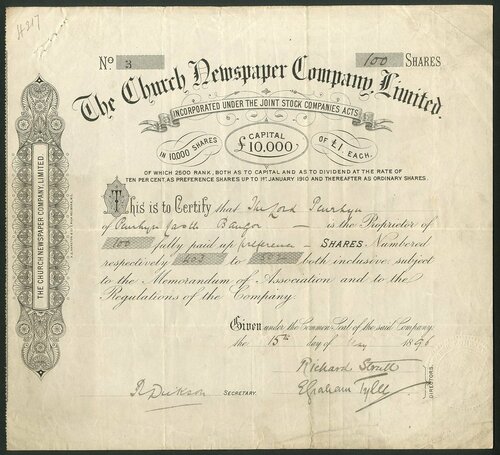 No 3 100 SHARES
The Church Newspaper Company, Limited.
INCORPORATED UNDER THE JOINT STOCK COMPANIES ACTS
IN 10,000 SHARES CAPITAL £10,000 OF £1 EACH.
OF WHICH 2500 RANK, BOTH AS TO CAPITAL AND AS TO DIVIDEND AT THE RATE OF
TEN PER CENT, AS PREFERENCE SHARES UP TO 1ST JANUARY 1910 AND THEREAFTER AS ORDINARY SHARES.
This is to Certify that The Lord Penrhyn
of Penrhyn Castle Bangor is the Proprietor of
100 fully paid up preference SHARES Numbered
respectively 403 to 502 both inclusive, subject
to the Memorandum of Association and to the
Regulations of the Company.
Given under the Common Seal of the said Company,
the 15th day of May 1896
Richard Strutt
EGraham Tylee
DIRECTORS.
SECRETARY.
THE CHURCH NEWSPAPER COMPANY, LIMITED.